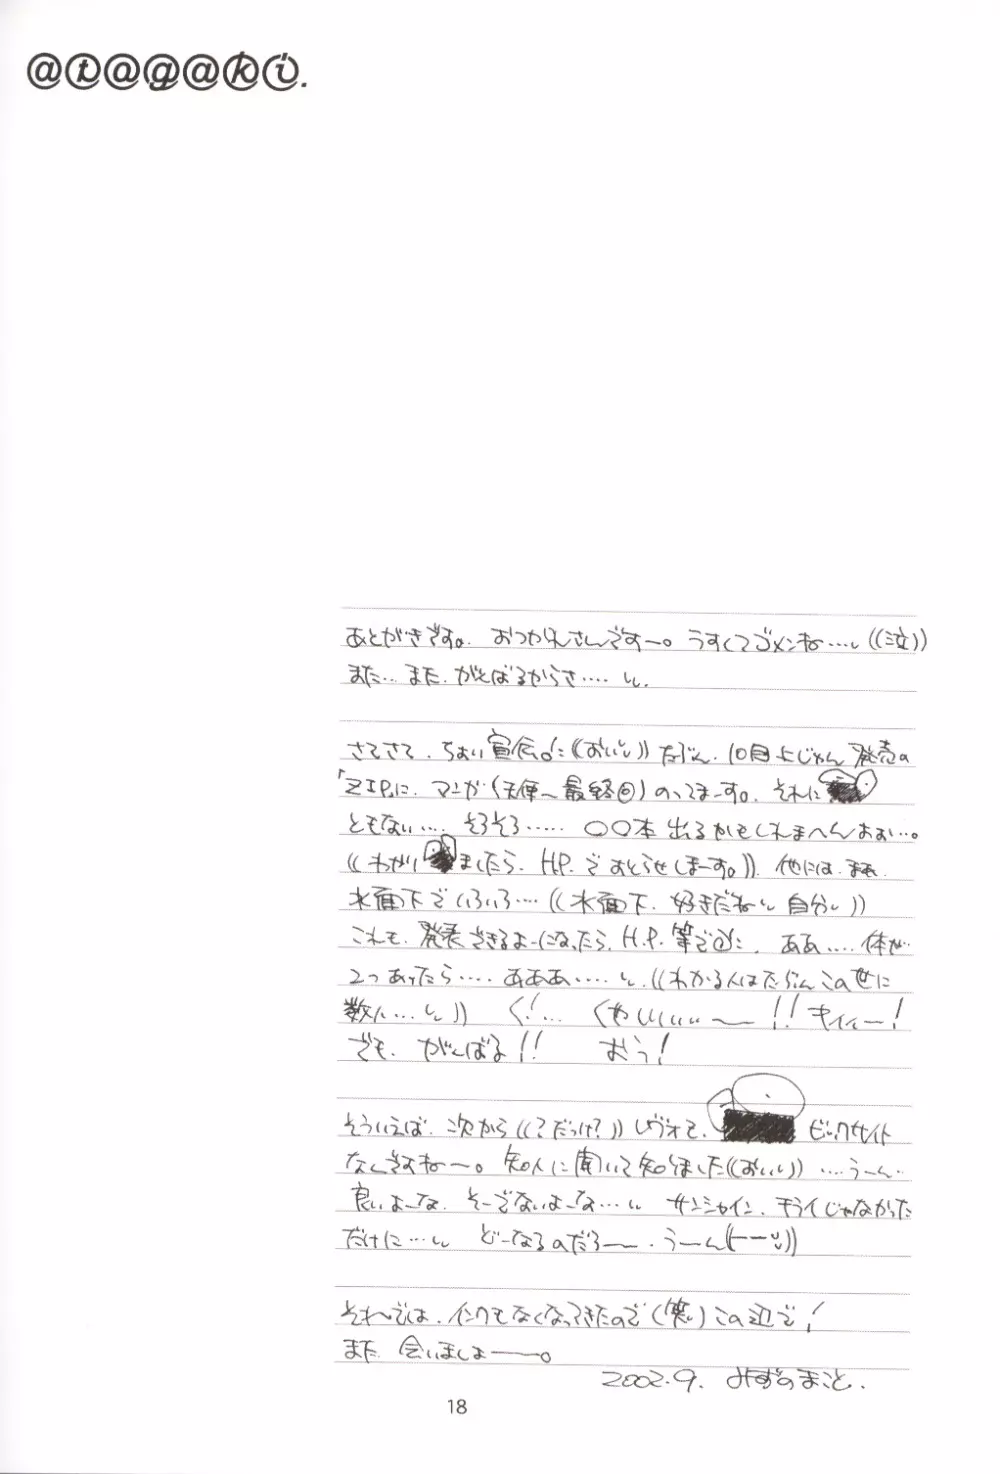 @t@g@ki.
あとがきです。おつかれさんですー。うすくてゴメンね…((泣))
また… また がんばるからさ….
さてさて、ちょい宣伝。((おいい)) たぶん、10月上じゅん 発売の
「ZIP」に、マンガ(天使〜最終回)のってまーす。それに
ともない…. そろそろ…… 〇〇本 出るかもしれまへんおぉ…。
((わかりましたら、H.P.で おしらせしまーす。)) 他には、まぁ
水面下で いろいろ…((水面下、好きだねい 自分))
これも、発表できるよーになったら、H.P.等で ああ…. 体が
2つ あったら….. あああ…… ((わかる人は たぶん この世に
数人…)) く!… くやしいぃぃー〜!! キィィー!
でも、がんばる!! おう!
そういえば、次から((?だっけ?)) レヴォて、 ビックサイト
なんですねー。知人に聞いて知りました((おいい)) …. うーん
良いよーな、そーでないよーな… サンシャイン、キライじゃなかった
だけに… どーなるのだろー. うーん
それでは、インクもなくなってきたので(笑) この辺で!
また 会いましょーー。
2002.9. みずのまこと.
18